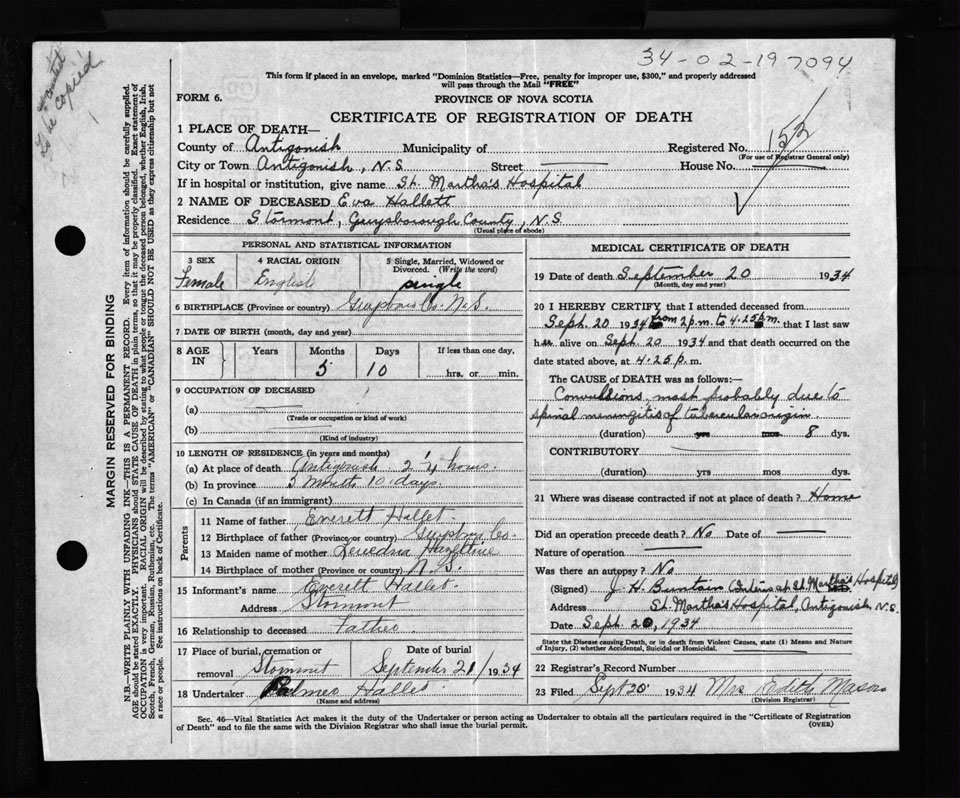 34-02-197094
To be copied
This form if placed in an envelope, marked "Dominion Statistics—Free, penalty for improper use, $300," and properly addressed
will pass through the Mail "FREE"
FORM 6.
PROVINCE OF NOVA SCOTIA
CERTIFICATE OF REGISTRATION OF DEATH
1 PLACE OF DEATH—
County of Antigonish Municipality of Registered No. 152
(For use of Registrar General only)
City or Town Antigonish, N.S. Street House No.
If in hospital or institution, give name St. Martha's Hospital
2 NAME OF DECEASED Eva Hallett
Residence Stormont, Guysborough County, N.S.
(Usual place of abode)
MARGIN RESERVED FOR BINDING
N.B.—WRITE PLAINLY WITH UNFADING INK—THIS IS A PERMANENT RECORD. Every item of information should be carefully supplied.
AGE should be stated EXACTLY. PHYSICIANS should STATE CAUSE OF DEATH in plain terms, so that it may be properly classified. Exact statement of
OCCUPATION is very important. RACIAL ORIGIN will be described by stating to what people or tongue the deceased person belonged, whether English, Irish,
Scotch, French, German, Russian, Ruthenian, etc. The terms "AMERICAN" or "CANADIAN" SHOULD NOT BE USED as they express citizenship but not
a race or people. See instructions on back of Certificate.
PERSONAL AND STATISTICAL INFORMATION
3 SEX 4 RACIAL ORIGIN 5 Single, Married, Widowed or
Divorced. (Write the word)
Female English single
6 BIRTHPLACE (Province or country) Co. N.S.
7 DATE OF BIRTH (month, day and year)
8 AGE IN Years Months Days If less than one day,
5 10 hrs. or min.
9 OCCUPATION OF DECEASED
(a)
(Trade or occupation or kind of work)
(b)
(Kind of industry)
10 LENGTH OF RESIDENCE (in years and months)
(a) At place of death Antigonish 2 1/4 hours.
(b) In province 5 months 10 days.
(c) In Canada (if an immigrant)
Parents
11 Name of father Everett Hallet
12 Birthplace of father (Province or country) Co.
13 Maiden name of mother
14 Birthplace of mother (Province or country) N.S.
15 Informant's name Everett Hallet
Address Stormont
16 Relationship to deceased Father
17 Place of burial, cremation or Date of burial
removal Stormont September 21/1934
18 Undertaker Hallet
(Name and address)
MEDICAL CERTIFICATE OF DEATH
19 Date of death September 20 1934
(Month, day and year)
20 I HEREBY CERTIFY, that I attended deceased from
Sept. 20 1934 from 2 p.m. to 4.25 p.m. that I last saw
her alive on Sept. 20 1934 and that death occurred on the
date stated above, at 4.25 p.m.
The CAUSE of DEATH was as follows:—
Convulsions, most probably due to
spinal meningitis of tubercular origin
(duration) yrs mos 8 dys.
CONTRIBUTORY
(duration) yrs mos dys.
21 Where was disease contracted if not at place of death? Home
Did an operation precede death? No Date of
Nature of operation
Was there an autopsy? No
(Signed) J. H. Buntain (Intern at St. Martha's Hospital)
Address St. Martha's Hospital, Antigonish, N.S.
Date Sept. 20, 1934
State the Disease causing Death, or in death from Violent Causes, state (1) Means and Nature
of Injury, (2) whether Accidental, Suicidal or Homicidal.
22 Registrar's Record Number
23 Filed Sept 20 1934 Mrs Edith Mason
(Division Registrar)
Sec. 46—Vital Statistics Act makes it the duty of the Undertaker or person acting as Undertaker to obtain all the particulars required in the "Certificate of Registration
of Death" and to file the same with the Division Registrar who shall issue the burial permit. (OVER)